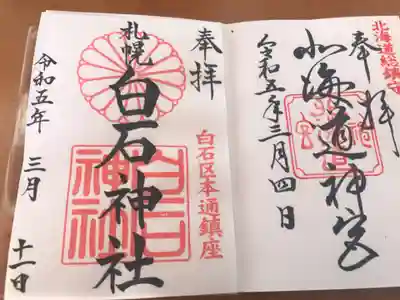 北海道総鎮守
奉拝
北海道神宮
令和五年三月四日
奉拝
白石区本通鎮座
札幌
白石神社
白石
神社
令和五年
三月
十一日